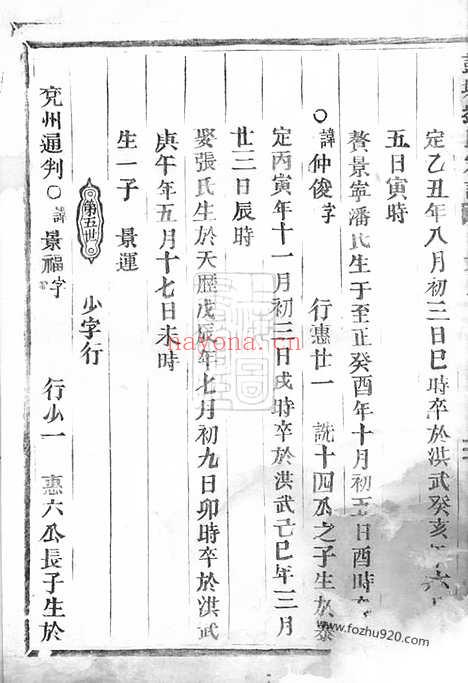 定乙丑年八月初三日巳時卒於洪武癸亥年六
五日寅時
贅景寧潘氏生于至正癸酉年十月初五日酉時
○諱仲俊字 行惠廿一 説十四公之子生於泰
定丙寅年十一月初三日戌時卒於洪武己巳年三月
廿二日辰時
娶張氏生於天歷戊辰年七月初九日卯時卒於洪武
庚午年五月十七日未時
生一子 景運
第五世 少字行
兗州通判○諱景福字 行少一 惠六公長子生於
nayona.cn
www.fozhu920.com